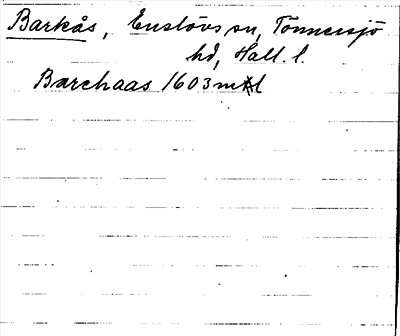 Barkås, Enslövs sn, Tönnersjö
hd, Hall. l.
Barchaas 1603